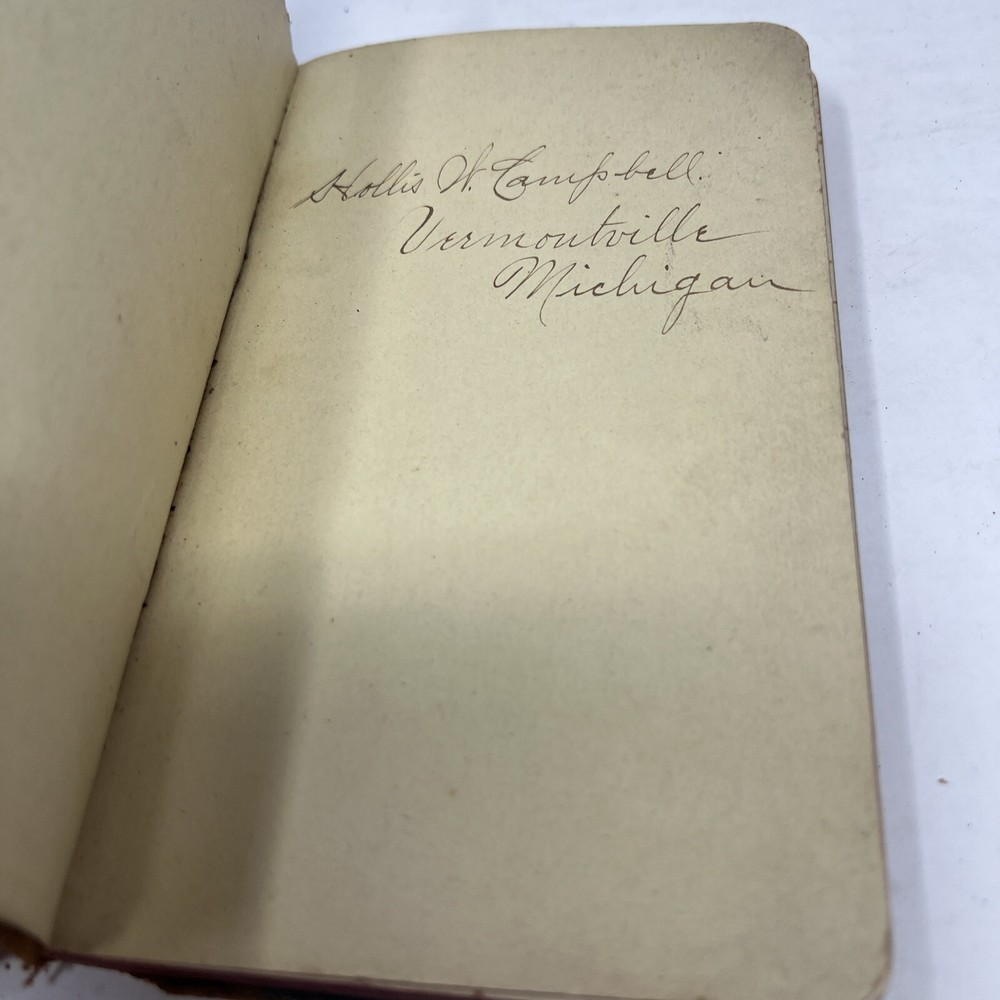 Hollis W. Campbell.
Vermontville
Michigan